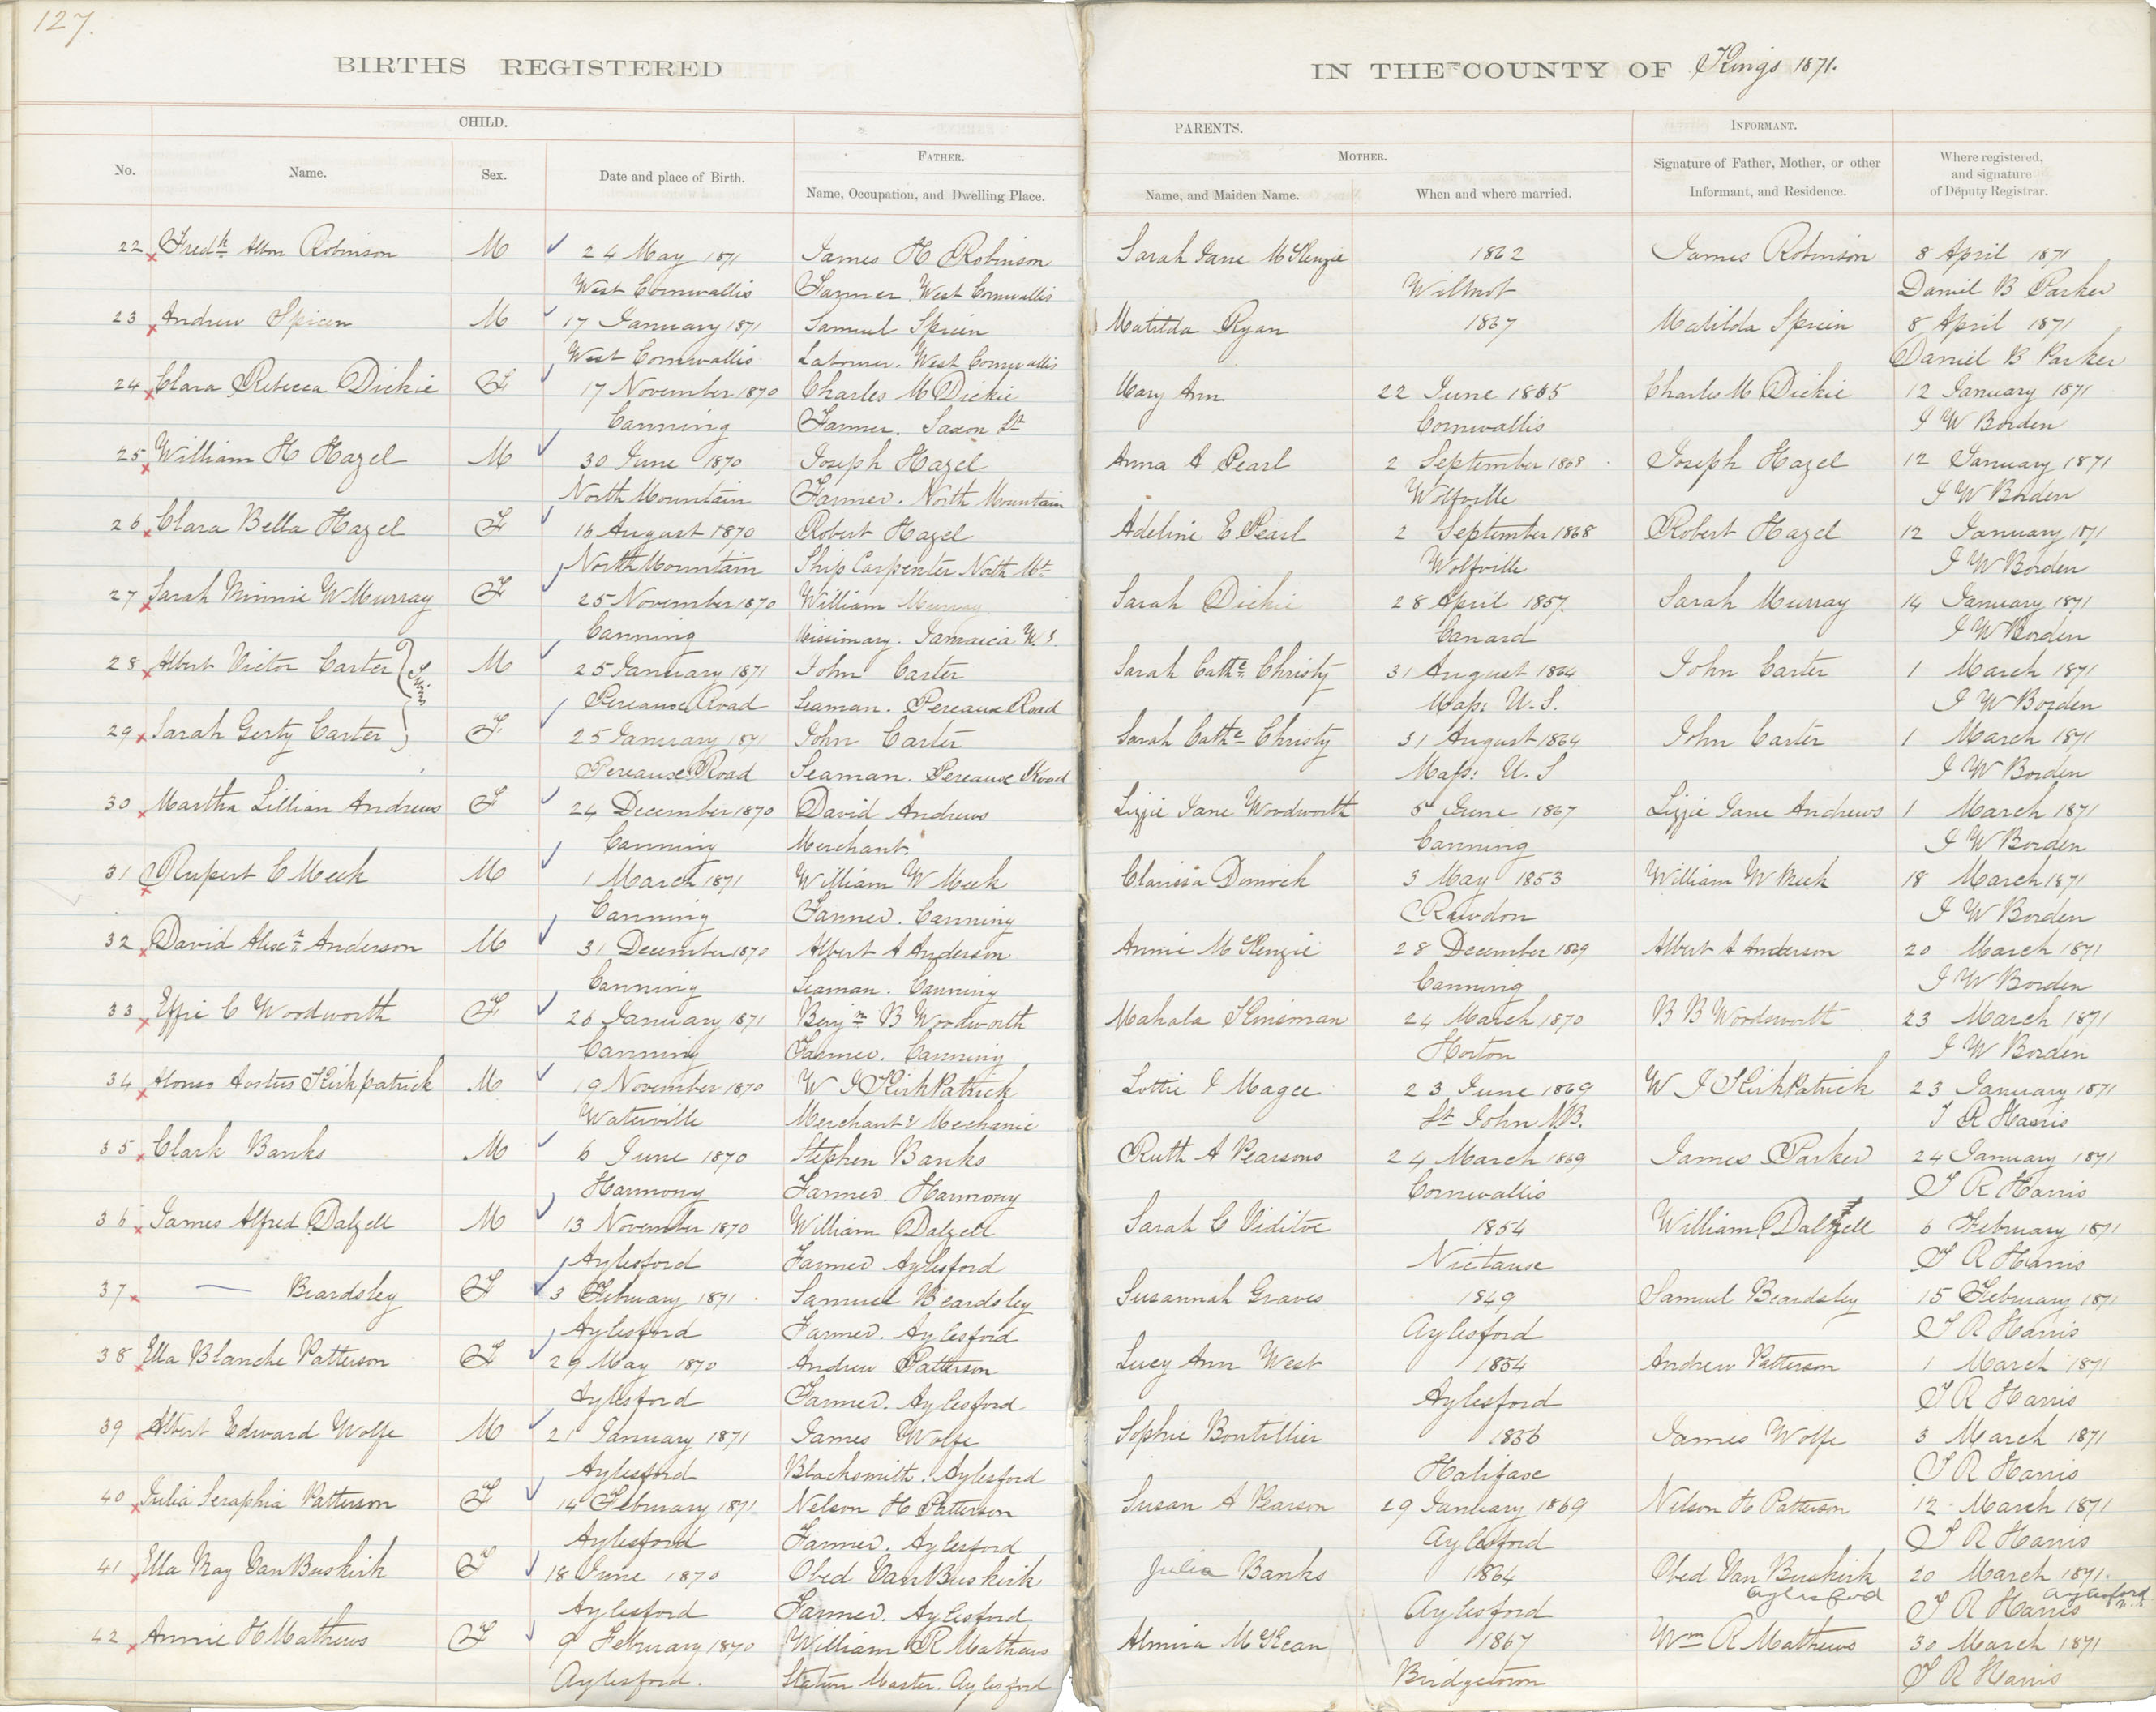 127.
BIRTHS REGISTERED IN THE COUNTY OF Kings 1871.
CHILD. PARENTS. INFORMANT.
FATHER. MOTHER.
No. Name. Sex. Date and place of Birth. Name, Occupation, and Dwelling Place. Name, and Maiden Name. When and where married. Signature of Father, Mother, or other Informant, and Residence. Where registered, and signature of Deputy Registrar.
22 Fredk Albon Robinson M 24 May 1871 James H Robinson Sarah Jane McKenzie 1862 James Robinson 8 April 1871
West Cornwallis Farmer West Cornwallis Wilmot Daniel B Parker
23 Andrew Spicen M 17 January 1871 Samuel Spicin Matilda Ryan 1867 Matilda Spicin 8 April 1871
West Cornwallis Labourer. West Cornwallis Daniel B Parker
24 Clara Rebecca Dickie F 17 November 1870 Charles M Dickie Mary Ann 22 June 1865 Charles M Dickie 12 January 1871
Canning Farmer. Saxon St Cornwallis J W Borden
25 William H Hazel M 30 June 1870 Joseph Hazel Anna A Pearl 2 September 1868 Joseph Hazel 12 January 1871
North Mountain Farmer. North Mountain Wolfville J W Borden
26 Clara Bella Hazel F 16 August 1870 Robert Hazel Adeline E Pearl 2 September 1868 Robert Hazel 12 January 1871
North Mountain Ship Carpenter North Mt Wolfville J W Borden
27 Sarah Minnie W Murray F 25 November 1870 William Murray Sarah Dickie 28 April 1857. Sarah Murray 14 January 1871
Canning Missionary. Jamaica W.I. Canard J W Borden
28 Albert Victor Carter (Twins M 25 January 1871 John Carter Sarah Cathe Christy 31 August 1864 John Carter 1 March 1871
Pereaux Road Seaman. Pereaux Road Mass: U.S. J W Borden
29 Sarah Gerty Carter ) F 25 January 1871 John Carter Sarah Cathe Christy 31 August 1864 John Carter 1 March 1871
Pereaux Road Seaman. Pereaux Road Mass: U.S J W Borden
30 Martha Lillian Andrews F 24 December 1870 David Andrews Lizzie Jane Woodworth 5 June 1867 Lizzie Jane Andrews 1 March 1871
Canning Merchant. Canning J W Borden
31 Rupert C Meek M 1 March 1871 William W Meek Clarissa Dimock 3 May 1853 William W Meek 18 March 1871
Canning Farmer. Canning Rawdon J W Borden
32 David Alexr Anderson M 31 December 1870 Albert A Anderson Annie McKenzie 28 December 1869 Albert A Anderson 20 March 1871
Canning Seaman. Canning Canning J W Borden
33 Effie C Woodworth F 26 January 1871 Benjn B Woodworth Mahala Kinsman 24 March 1870 B B Woodworth 23 March 1871
Canning Farmer. Canning Horton J W Borden
34 Alonso Kirkpatrick M 19 November 1870 W J KirkPatrick Lottie J Magee 23 June 1869 W J KirkPatrick 23 January 1871
Waterville Merchant & Mechanic St John N.B. T R Harris
35 Clark Banks M 6 June 1870 Stephen Banks Ruth A Pearsons 24 March 1869 James Parker 24 January 1871
Harmony Farmer. Harmony Cornwallis T R Harris
36 James Alfred Dalzell M 13 November 1870 William Dalzell Sarah C Viditoe 1854 William Dalzell 6 February 1871
Aylesford Farmer Aylesford Nictaux T R Harris
37 — Beardsley F 3 February 1871 Samuel Beardsley Susannah Graves 1849 Samuel Beardsley 15 February 1871
Aylesford Farmer. Aylesford Aylesford T R Harris
38 Ella Blanche Patterson F 29 May 1870 Andrew Patterson Lucy Ann West 1854 Andrew Patterson 1 March 1871
Aylesford Farmer. Aylesford Aylesford T R Harris
39 Albert Edward Wolfe M 21 January 1871 James Wolfe Sophie Boutillier 1856 James Wolfe 3 March 1871
Aylesford Blacksmith. Aylesford Halifax T R Harris
40 Julia Seraphia Patterson F 14 February 1871 Nelson H Patterson Susan A Pearson 29 January 1869 Nelson H Patterson 12 March 1871
Aylesford Farmer. Aylesford Aylesford T R Harris
41 Ella May VanBuskirk F 18 June 1870 Obed VanBuskirk Julia Banks 1864 Obed Van Buskirk 20 March 1871.
Aylesford Farmer. Aylesford Aylesford Aylesford T R Harris Aylesford N.S.
42 Annie H Mathews F 9 February 1870 William R Mathews Almira McKean 1867 Wm R Mathews 30 March 1871
Aylesford. Station Master. Aylesford Bridgetown T R Harris